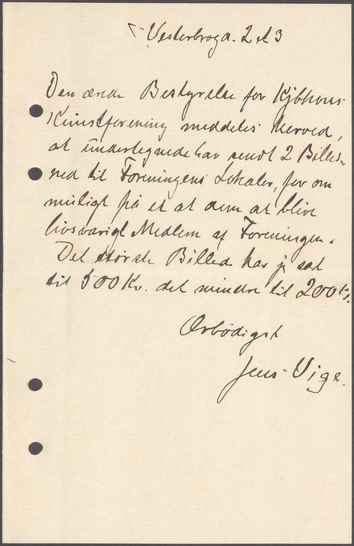 Vesterbrog. 2 A 3
Den ærede Bestyrelse for Kjøbhvns
Kunstforening meddeles herved,
at undertegnede har sendt 2 Billed
ned til Foreningens Lokaler, for om
muligt på et af dem at blive
livsvarigt Medlem af Foreningen.
Det største Billed har jeg sat
til 500 Kr. det mindre til 200 Kr.
Ærbødigst
Jens Vige.